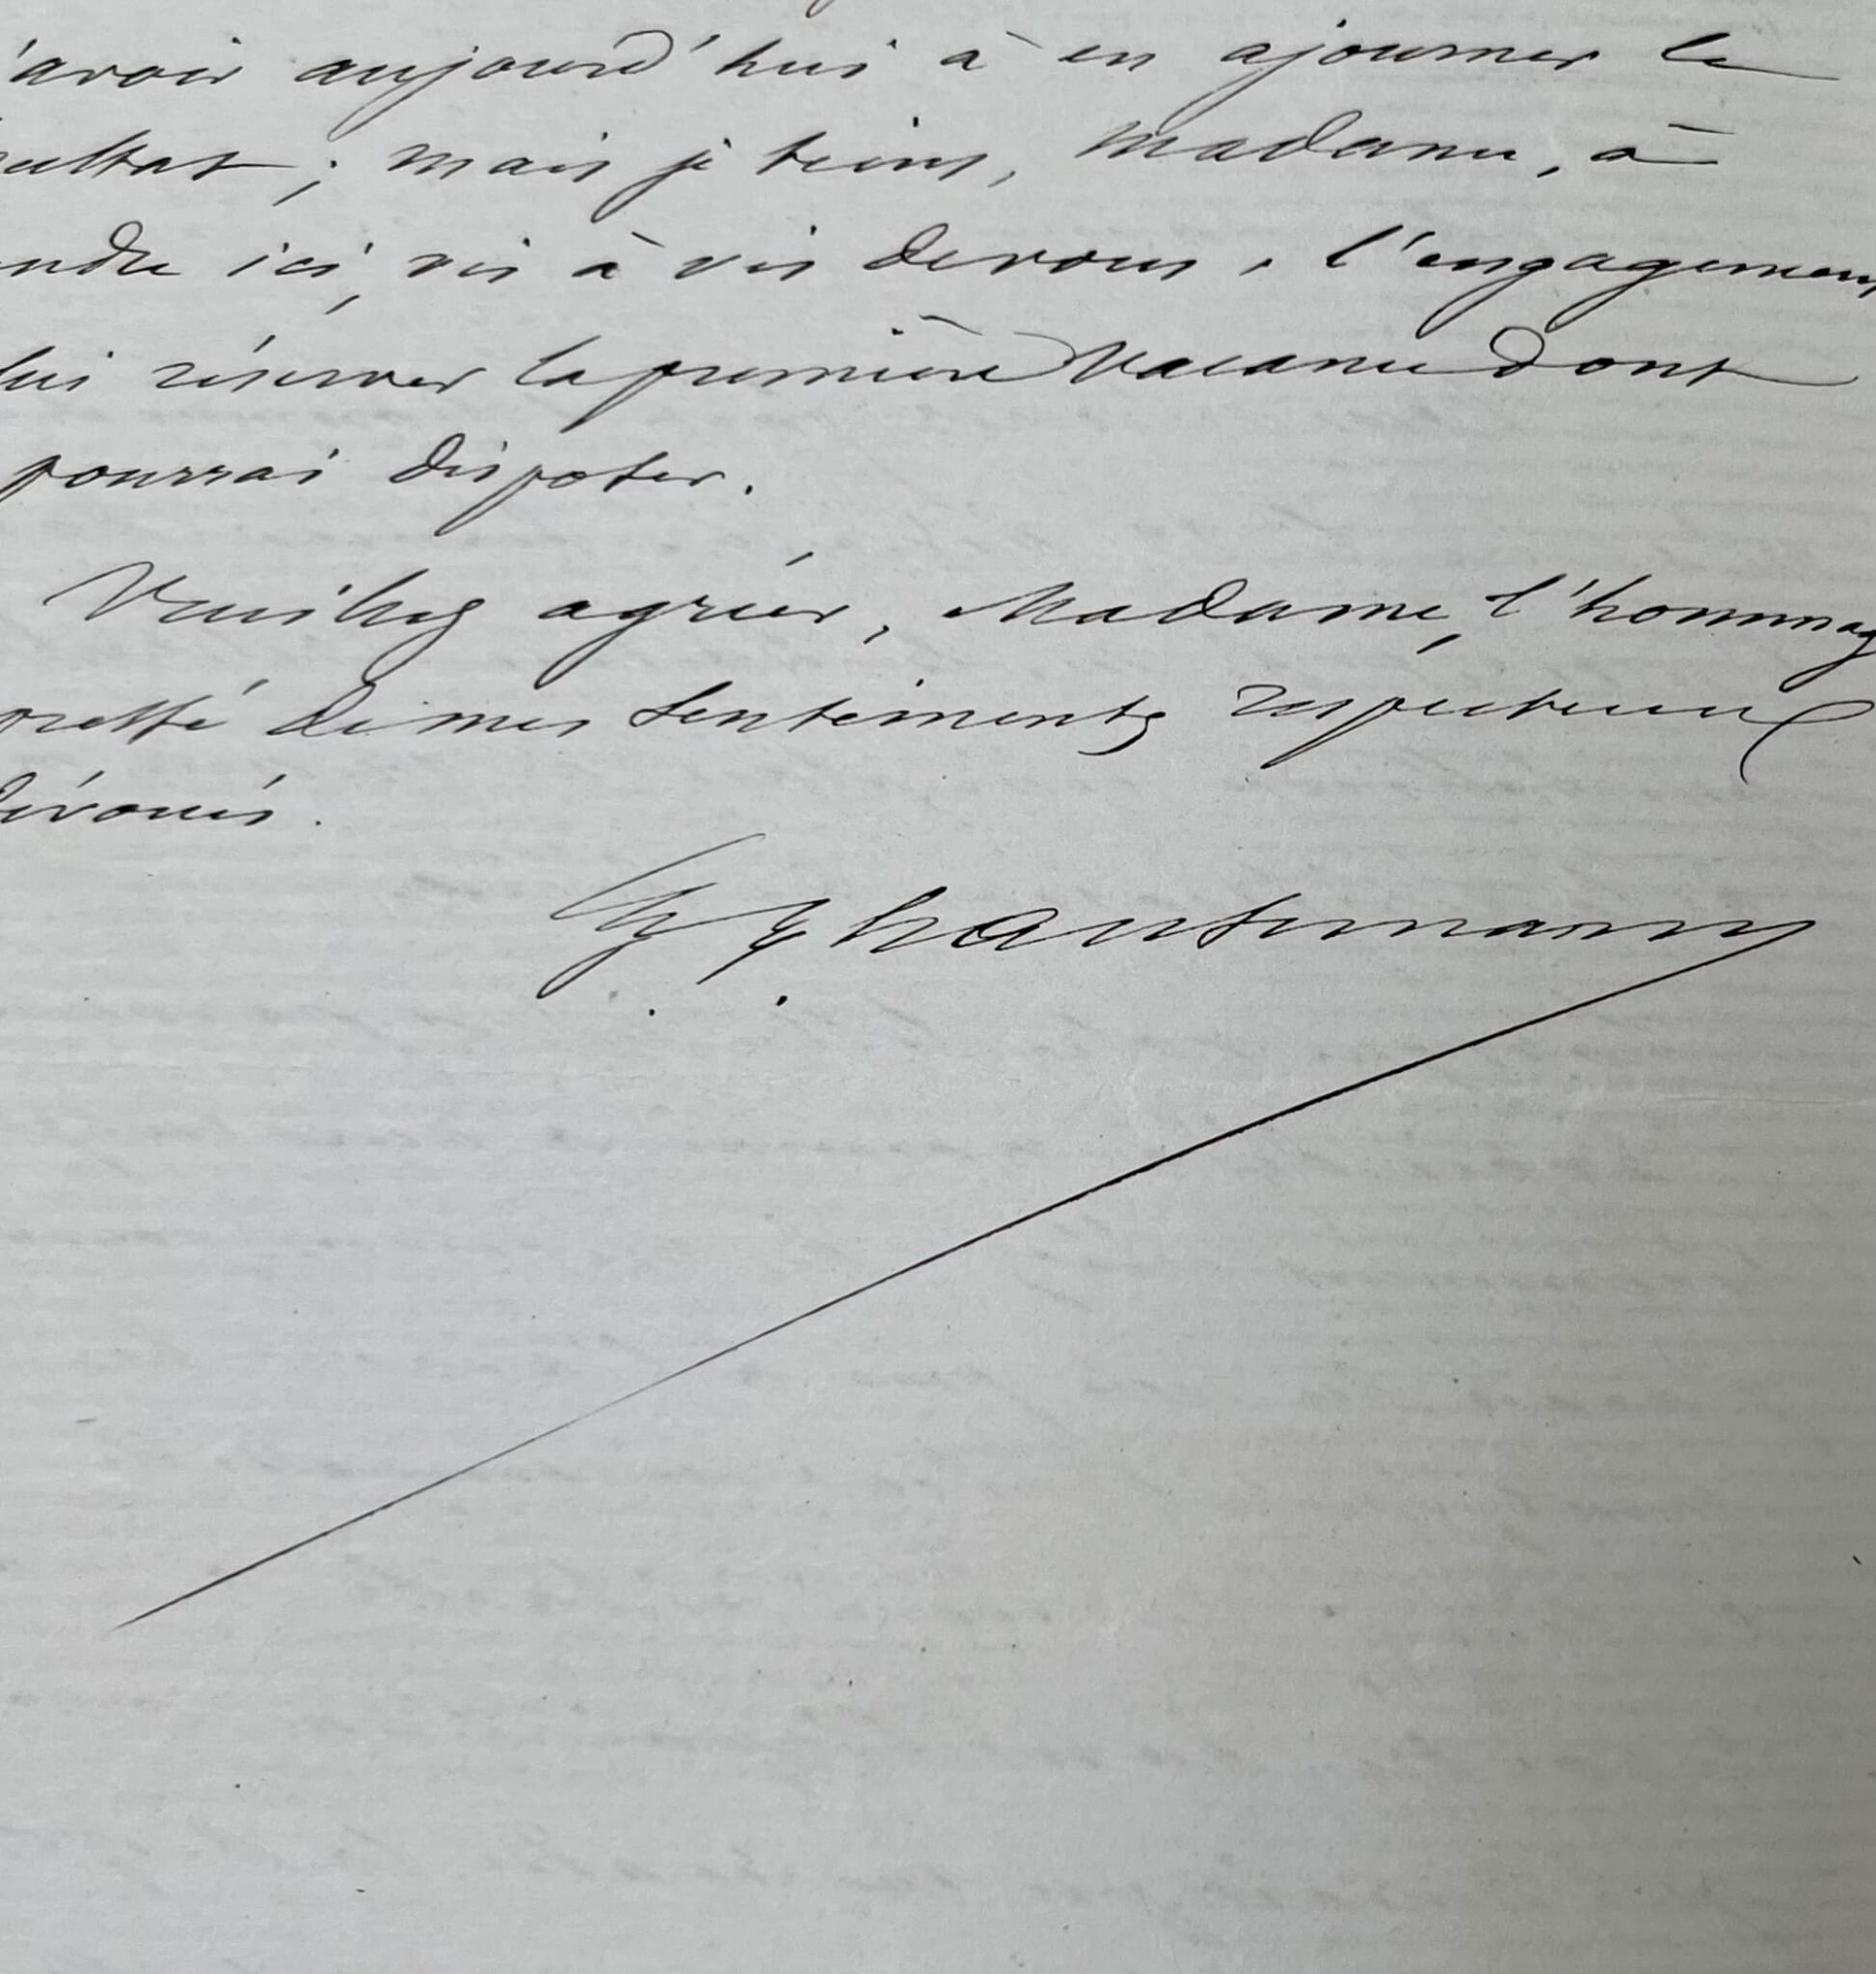 'avoir aujourd'hui à en ajourner le
sultat ; mais je tiens, Madame, à
endre ici, vis à vis de vous, l'engagement
lui réserver la première vacance dont
pourrai disposer.
Veuillez agréer, Madame, l'hommag
de mes sentiments respectueux
dévoués.
G. E. Haussmann